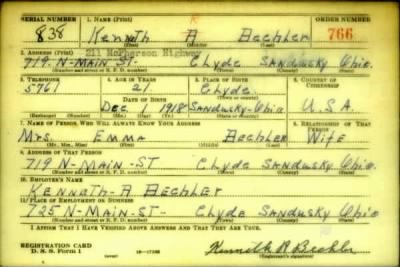 SERIAL NUMBER 1. NAME (Print) ORDER NUMBER
838 Kenneth A Bechler 766
R
(First) (Middle) (Last)
2. ADDRESS (Print) 211 McPherson Highway
719. N-MAIN ST. Clyde SANDUSKY Ohio.
(Number and street or R. F. D. number) (Town) (County) (State)
3. TELEPHONE 4. AGE IN YEARS 5. PLACE OF BIRTH 6. COUNTRY OF CITIZENSHIP
5761 21. Clyde.
DATE OF BIRTH (Town or county)
DEC 1 1918 Sandusky-Ohio U.S.A.
(Exchange) (Number) (Mo.) (Day) (Yr.) (State or country)
7. NAME OF PERSON WHO WILL ALWAYS KNOW YOUR ADDRESS 8. RELATIONSHIP OF THAT PERSON
Mrs. EMMA Bechler Wife
(Mr., Mrs., Miss) (First) (Middle) (Last)
9. ADDRESS OF THAT PERSON
719 N-MAIN-ST Clyde SANDUSKY Ohio.
(Number and street or R. F. D. number) (Town) (County) (State)
10. EMPLOYER'S NAME
KENNATH-A BECHLER
11. PLACE OF EMPLOYMENT OR BUSINESS
725 N-MAIN-ST- Clyde SANDUSKY Ohio.
(Number and street or R. F. D. number) (Town) (County) (State)
I AFFIRM THAT I HAVE VERIFIED ABOVE ANSWERS AND THAT THEY ARE TRUE.
REGISTRATION CARD
D. S. S. Form 1 (over) Kenneth R Bechler
(Registrant's signature)